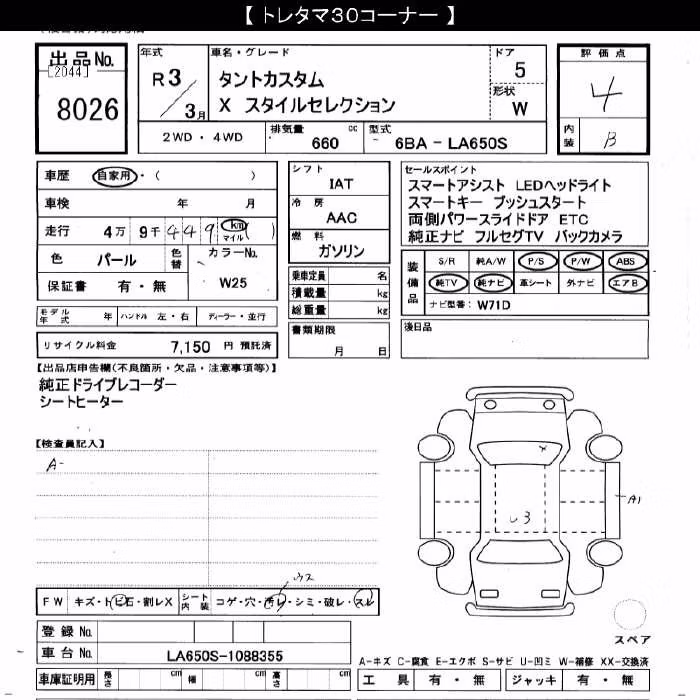 【 トレタマ30コーナー 】
出品No.
[2044]
8026
年式
R 3 / 3月
車名・グレード
タントカスタム
X スタイルセレクション
ドア
5
形状
W
評価点
4
内装
B
2WD・4WD
排気量 660 cc
型式 6BA - LA650S
車歴 自家用・( )
車検 年 月
走行 4万 9千 4 4 9 km マイル ( )
色 パール 色替
カラーNo. W25
保証書 有・無
モデル年式 年 ハンドル 左・右 ディーラー・並行
リサイクル料金 7,150 円 預託済
シフト
IAT
冷房
AAC
燃料
ガソリン
乗車定員 名
積載量 kg
総重量 kg
書類期限
月 日
セールスポイント
スマートアシスト LEDヘッドライト
スマートキー プッシュスタート
両側パワースライドドア ETC
純正ナビ フルセグTV バックカメラ
装備品
S/R 純A/W P/S P/W ABS
純TV 純ナビ 革シート 外ナビ エアB
ナビ型番: W71D
後日品
【出品店申告欄(不良箇所・欠品・注意事項等)】
純正ドライブレコーダー
シートヒーター
【検査員記入】
A-
X
U3
A1
ウス
FW キズ・トビ石・割レX シート内装 コゲ・穴・汚レ・シミ・破レ・スレ
スペア
登録No.
車台No. LA650S-1088355
車庫証明用 長さ cm 幅 cm 高さ cm
A-キズ C-腐食 E-エクボ S-サビ U-凹ミ W-補修 XX-交換済
工具 有・無 ジャッキ 有・無